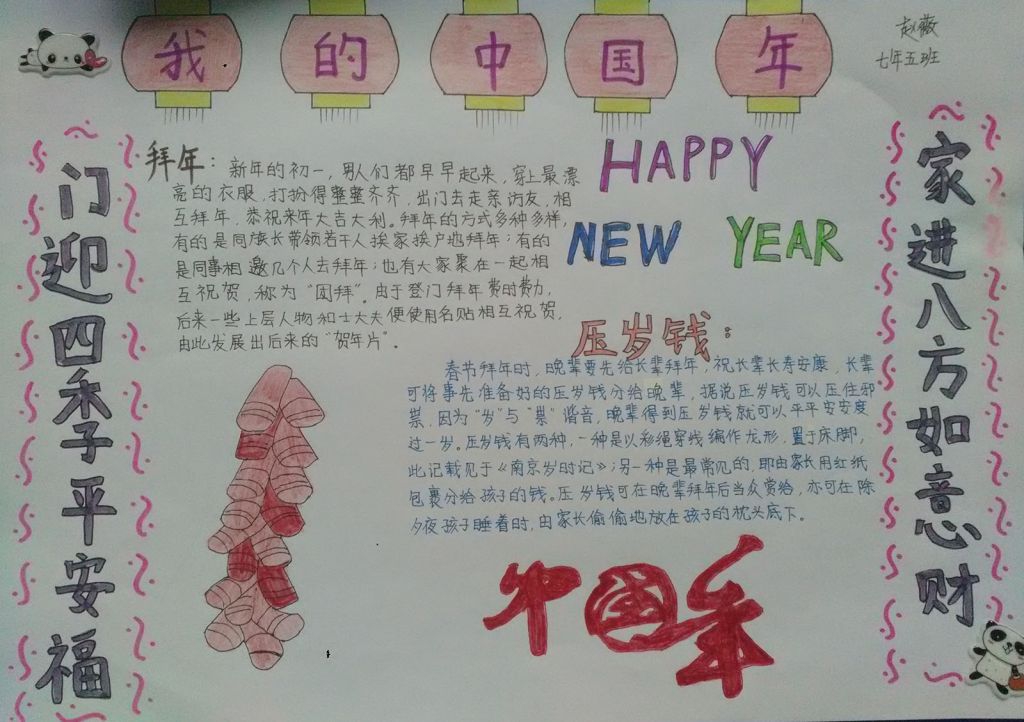 我的中国年
赵薇
七年五班
门迎四季平安福
家进八方如意财
拜年：新年的初一，男人们都早早起来，穿上最漂
亮的衣服，打扮得整整齐齐，出门去走亲访友，相
互拜年，恭祝来年大吉大利。拜年的方式多种多样，
有的是同族长带领若干人挨家挨户地拜年；有的
是同事相邀几个人去拜年；也有大家聚在一起相
互祝贺，称为“团拜”。由于登门拜年费时费力，
后来一些上层人物和士大夫便使用名贴相互祝贺，
由此发展出后来的“贺年片”。
HAPPY
NEW YEAR
压岁钱：
春节拜年时，晚辈要先给长辈拜年，祝长辈长寿安康，长辈
可将事先准备好的压岁钱分给晚辈，据说压岁钱可以压住邪
祟，因为“岁”与“祟”谐音，晚辈得到压岁钱就可以平平安安度
过一岁。压岁钱有两种，一种是以彩绳穿线编作龙形，置于床脚，
此记载见于《南京岁时记》；另一种是最常见的，即由家长用红纸
包裹分给孩子的钱。压岁钱可在晚辈拜年后当众赏给，亦可在除
夕夜孩子睡着时，由家长偷偷地放在孩子的枕头底下。
中国年